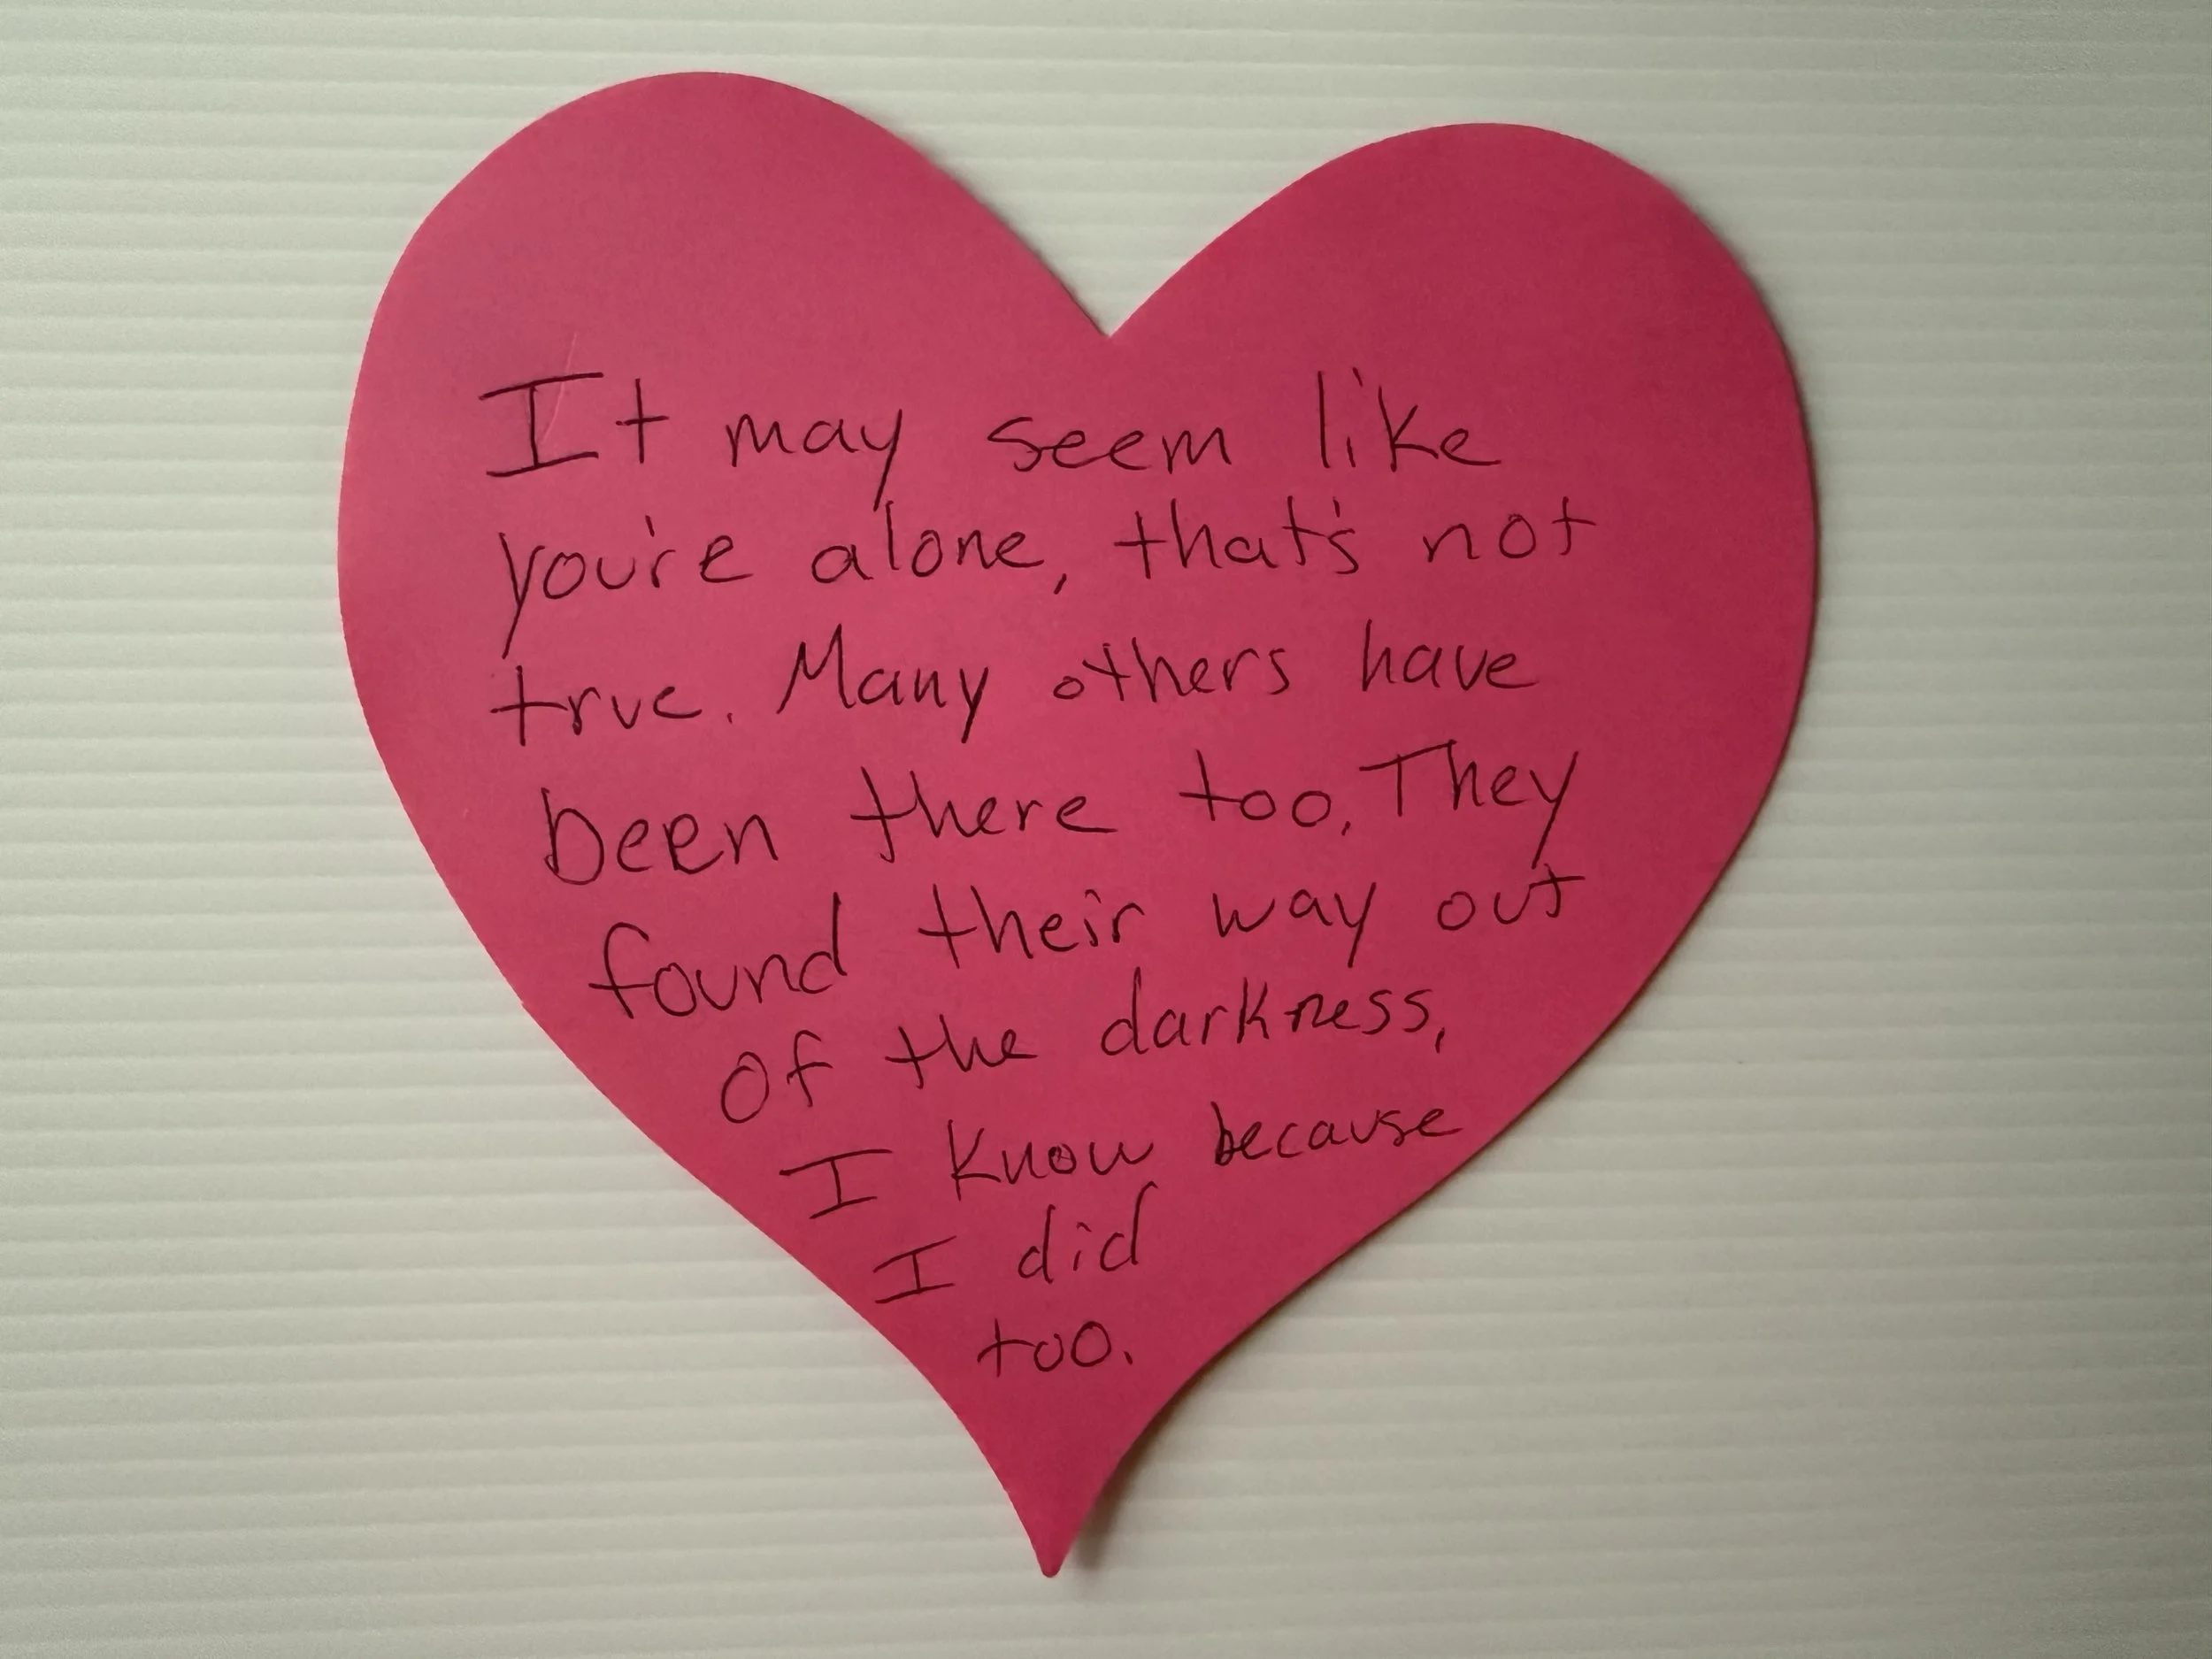 It may seem like
you're alone, that's not
true. Many others have
been there too. They
found their way out
of the darkness,
I know because
I did
too.